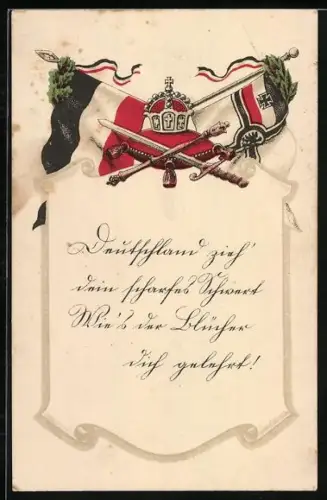 Deutschland zieh'
dein scharfes Schwert
Wie's der Blücher
dich gelehrt!